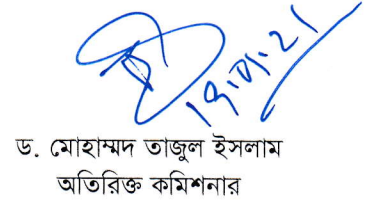 ১৭.০১.২১
ড. মোহাম্মদ তাজুল ইসলাম
অতিরিক্ত কমিশনার